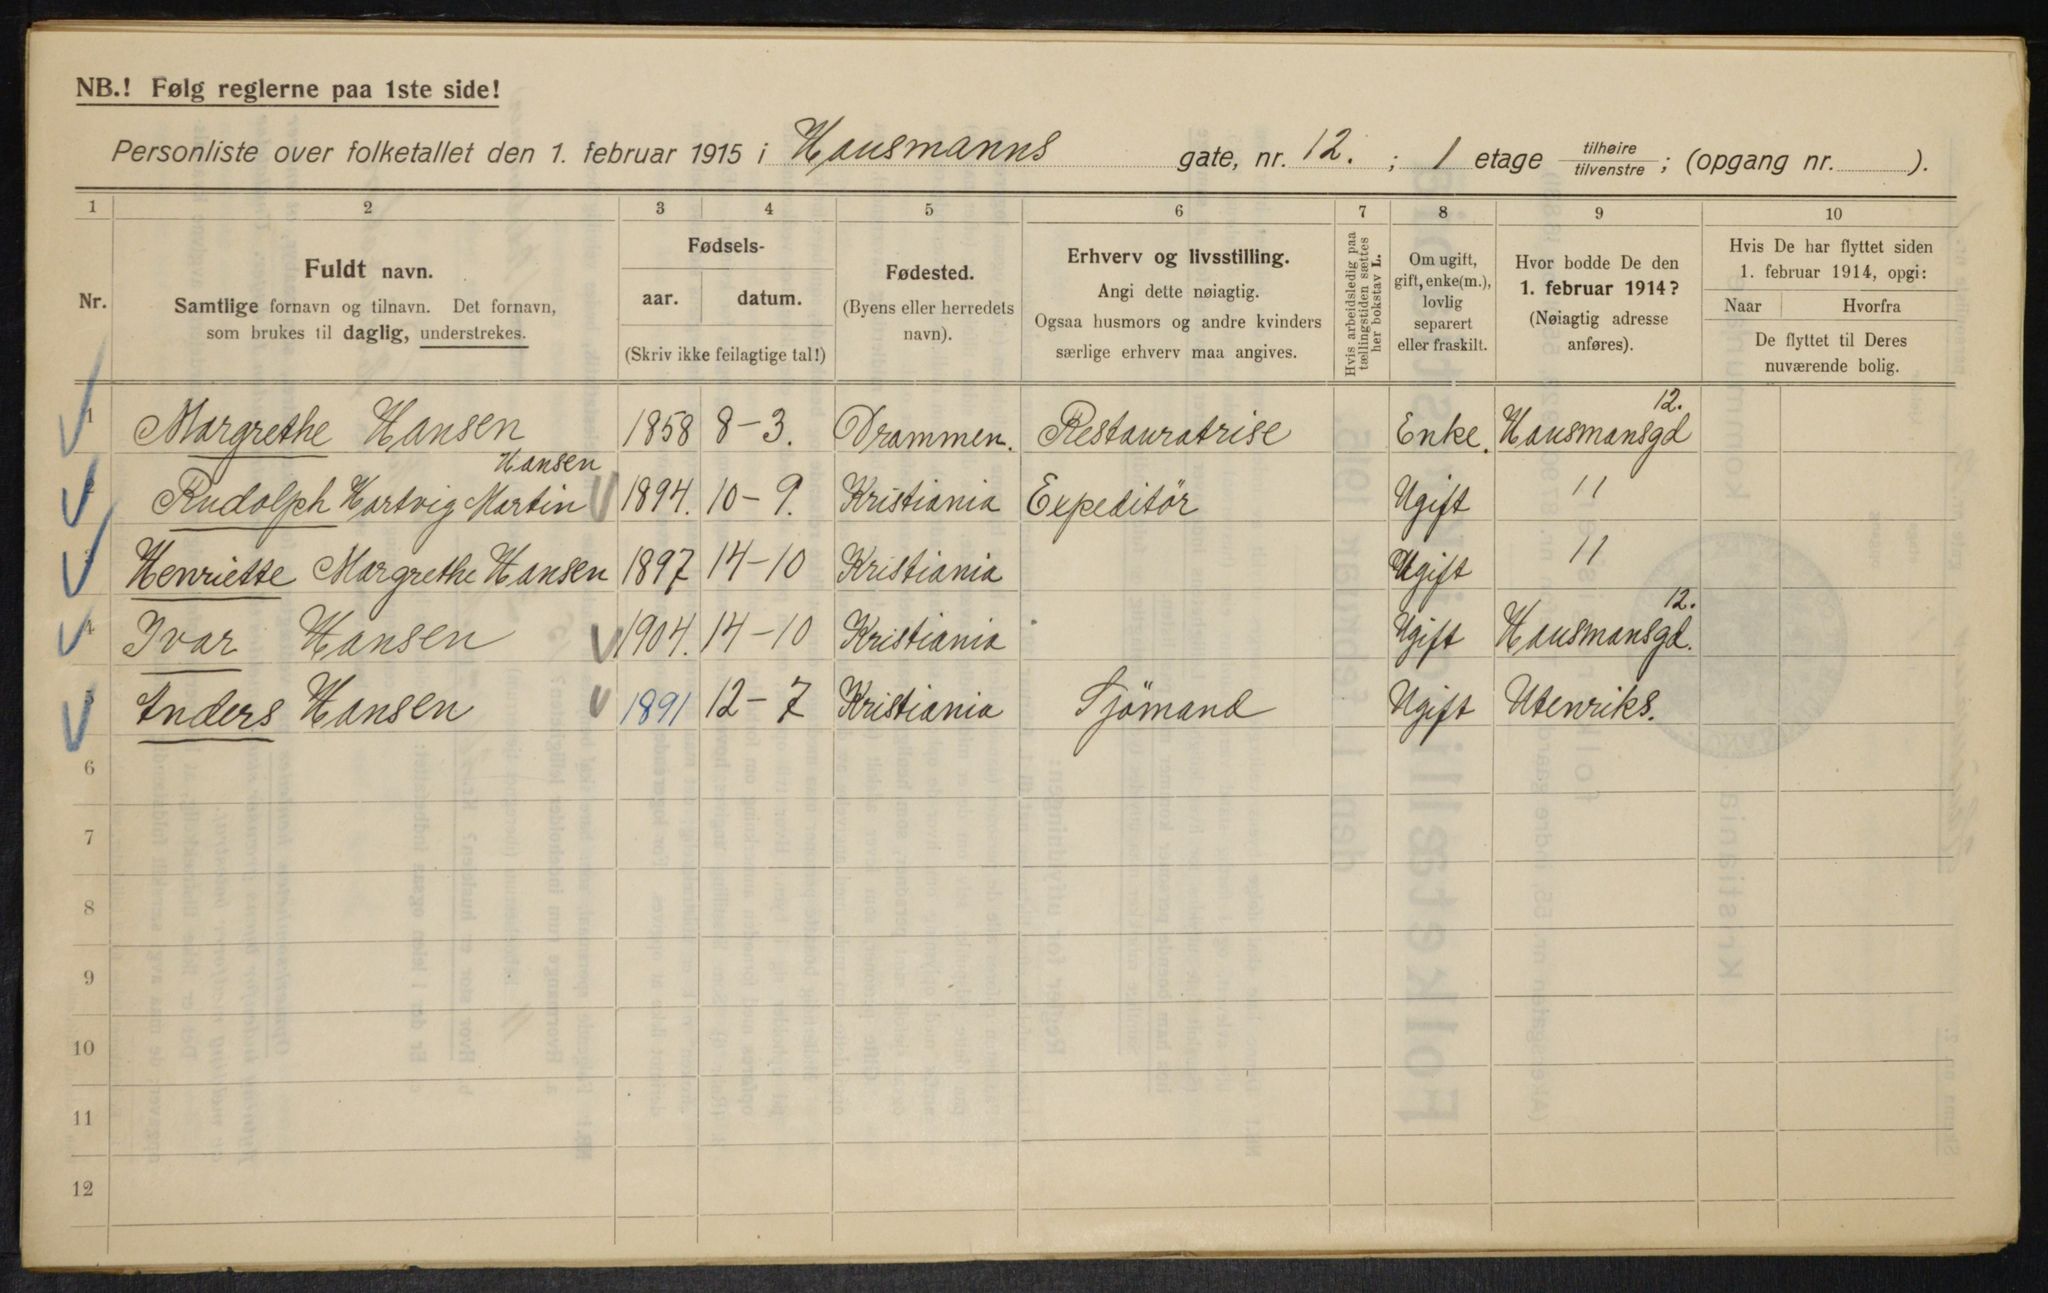 NB.! Følg reglerne paa 1ste side!
Personliste over folketallet den 1. februar 1915 i Hausmanns gate, nr. 12. ; 1 etage tilhøire tilvenstre ; (opgang nr. ).
1 2 3 4 5 6 7 8 9 10
Nr.
Fuldt navn.
Samtlige fornavn og tilnavn. Det fornavn,
som brukes til daglig, understrekes.
Fødsels-
aar. datum.
(Skriv ikke feilagtige tal!)
Fødested.
(Byens eller herredets
navn).
Erhverv og livsstilling.
Angi dette nøiagtig.
Ogsaa husmors og andre kvinders
særlige erhverv maa angives.
Hvis arbeidsledig paa
tællingstiden sættes
her bokstav L.
Om ugift,
gift, enke(m.),
lovlig
separert
eller fraskilt.
Hvor bodde De den
1. februar 1914?
(Nøiagtig adresse
anføres).
Hvis De har flyttet siden
1. februar 1914, opgi:
Naar Hvorfra
De flyttet til Deres
nuværende bolig.
1 Margrethe Hansen 1858 8-3. Drammen. Restauratrise Enke. Hausmansgd 12.
2 Rudolph Hartvig Martin Hansen 1894. 10-9. Kristiania Expeditör Ugift "
3 Henriette Margrethe Hansen 1897 14-10 Kristiania Ugift "
4 Ivar Hansen 1904. 14-10 Kristiania Ugift Hausmansgd. 12.
5 Anders Hansen 1891 12-7 Kristiania Sjömand Ugift Utenriks.
6
7
8
9
10
11
12